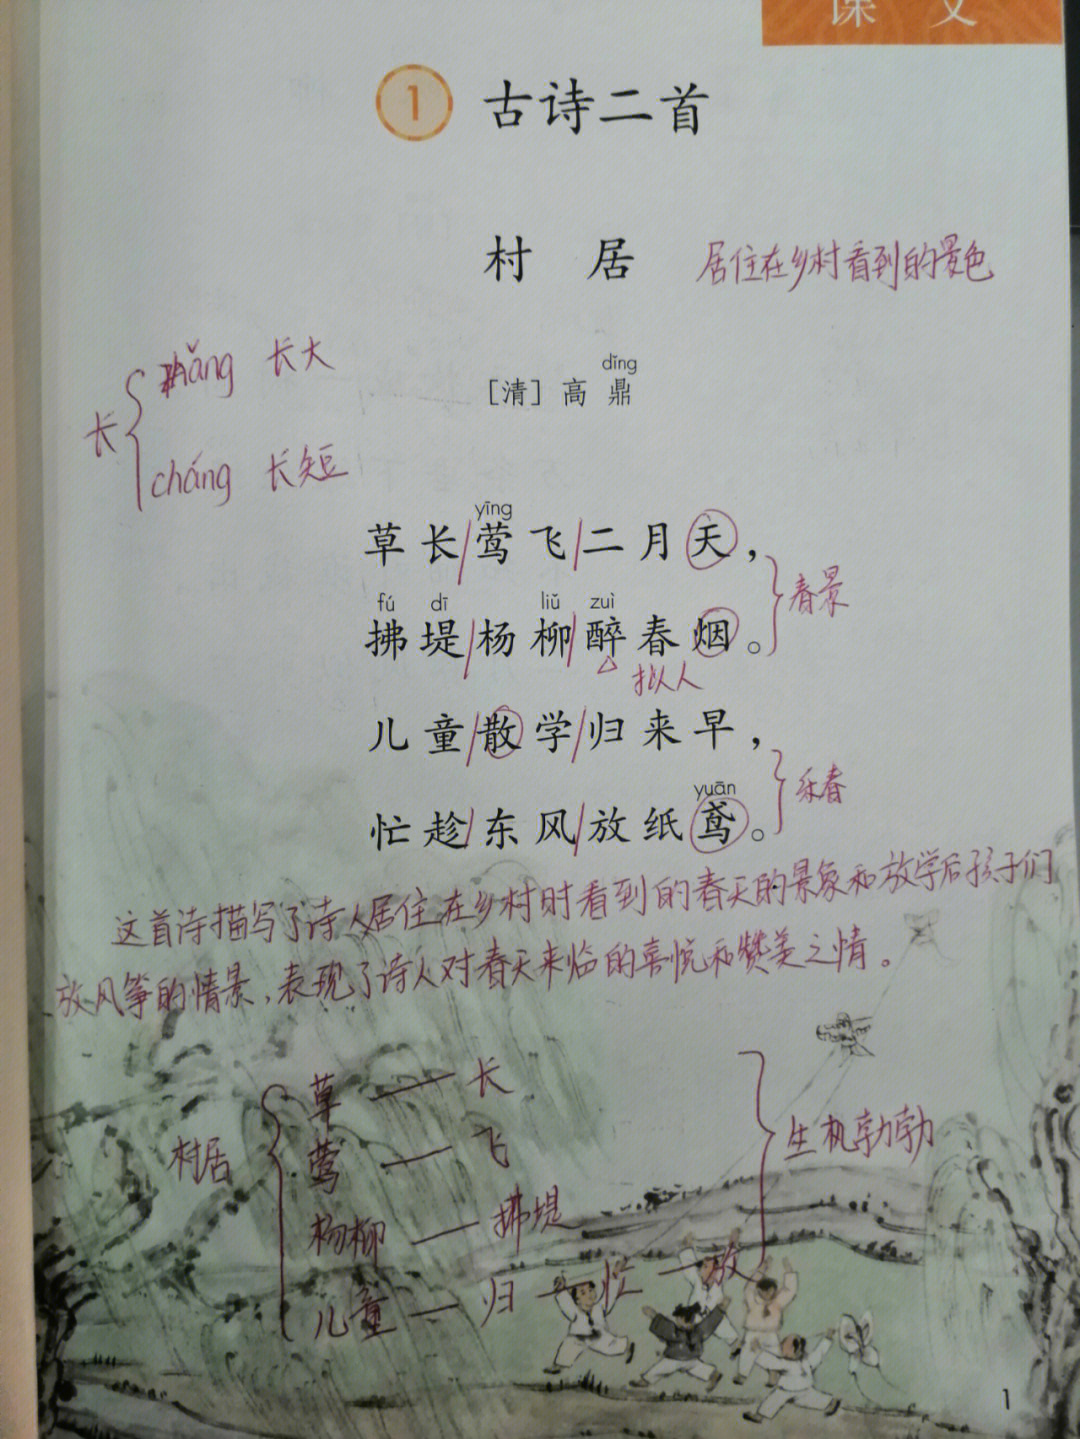 课文
1 古诗二首
村居 居住在乡村看到的景色
zhǎng 长大
dǐng
[清] 高鼎
长
cháng 长短
yīng
草长/莺飞/二月天，
fú dī liǔ zuì
春景
拂堤/杨柳/醉春烟。
拟人
儿童/散学/归来早，
乐春
yuān
忙趁/东风/放纸鸢。
这首诗描写了诗人居住在乡村时看到的春天的景象和放学后孩子们
放风筝的情景，表现了诗人对春天来临的喜悦和赞美之情。
草——长
村居 莺——飞 生机勃勃
杨柳——拂堤
儿童——归——忙——放
1